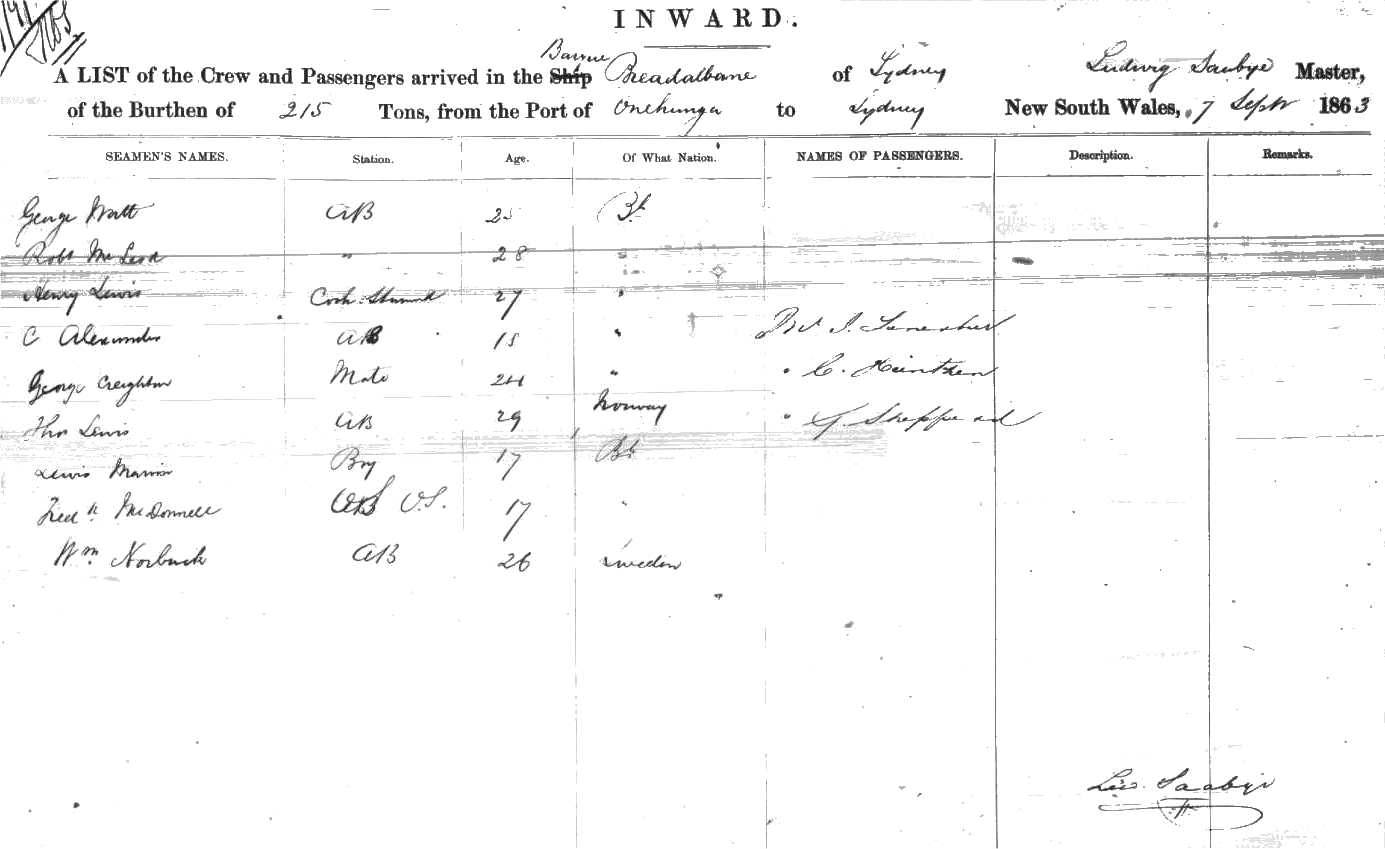 INWARD.
Barque
A LIST of the Crew and Passengers arrived in the Ship Breadalbane of Sydney Ludwig Saabye Master,
of the Burthen of 215 Tons, from the Port of Onehunga to Sydney New South Wales, 7 Septr 1863
SEAMEN'S NAMES. Station. Age. Of What Nation. NAMES OF PASSENGERS. Description. Remarks.
George Watt AB 25 Bh
Robt McLeod " 28 "
Henry Lewis Cook & Steward 27 "
C Alexander AB "
George Creighton Mate 24 "
Thos Lewis AB 29 Norway
Lewis Boy 17 Bh
Fredk McDonnell OS. 17 "
Wm. AB 26 Sweden
C.
" G Sheppard
Saabye